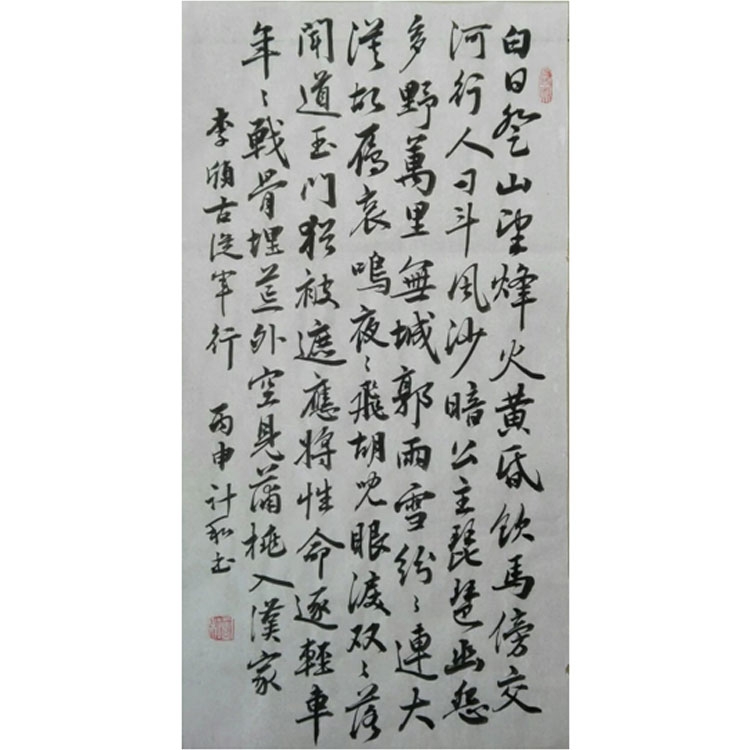 白日登山望烽火黄昏飲馬傍交
河行人刁斗風沙暗公主琵琶幽怨
多野萬里無城郭雨雪紛〻連大
漠胡雁哀鳴夜〻飛胡兒眼淚双〻落
聞道玉門猶被遮應將性命逐輕車
年〻戰骨埋荒外空見蒲桃入漢家
李頎古從軍行 丙申 計 书